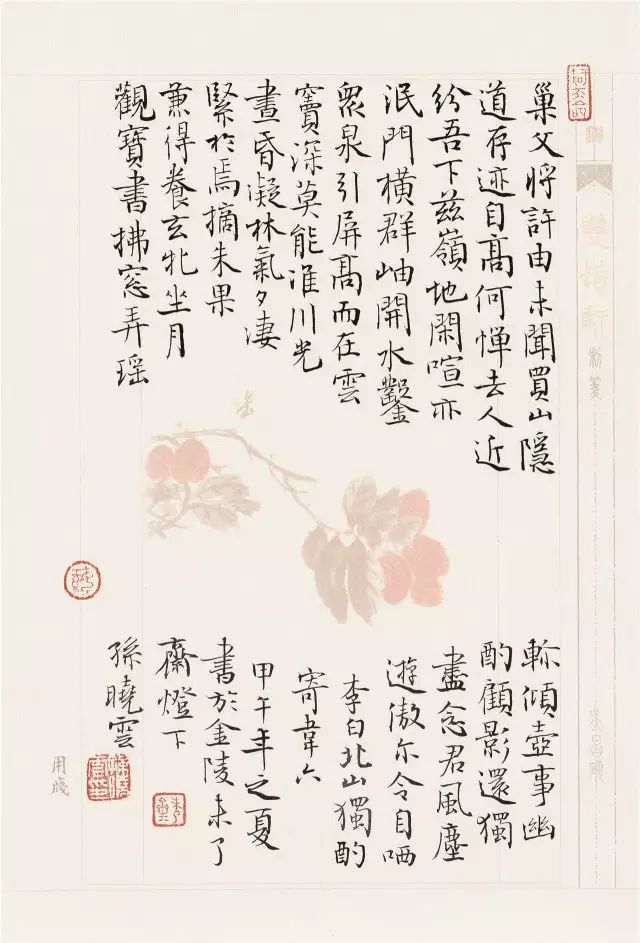 巢父将許由未聞買山隱
道存迹自高何憚去人近
紛吾下兹嶺地閑喧亦
泯門橫群岫開水鑿
衆泉引屏高而在雲
竇深莫能準川光
晝昏凝林氣夕淒
緊於焉摘朱果
兼得養玄牝坐月
觀寶書拂窓弄瑶
軫傾壺事幽
酌顧影還獨
盡念君風塵
遊傲尔令自哂
李白北山獨酌
寄韋六
甲午年之夏
書於金陵未了
齋燈下
孫曉雲
用牋